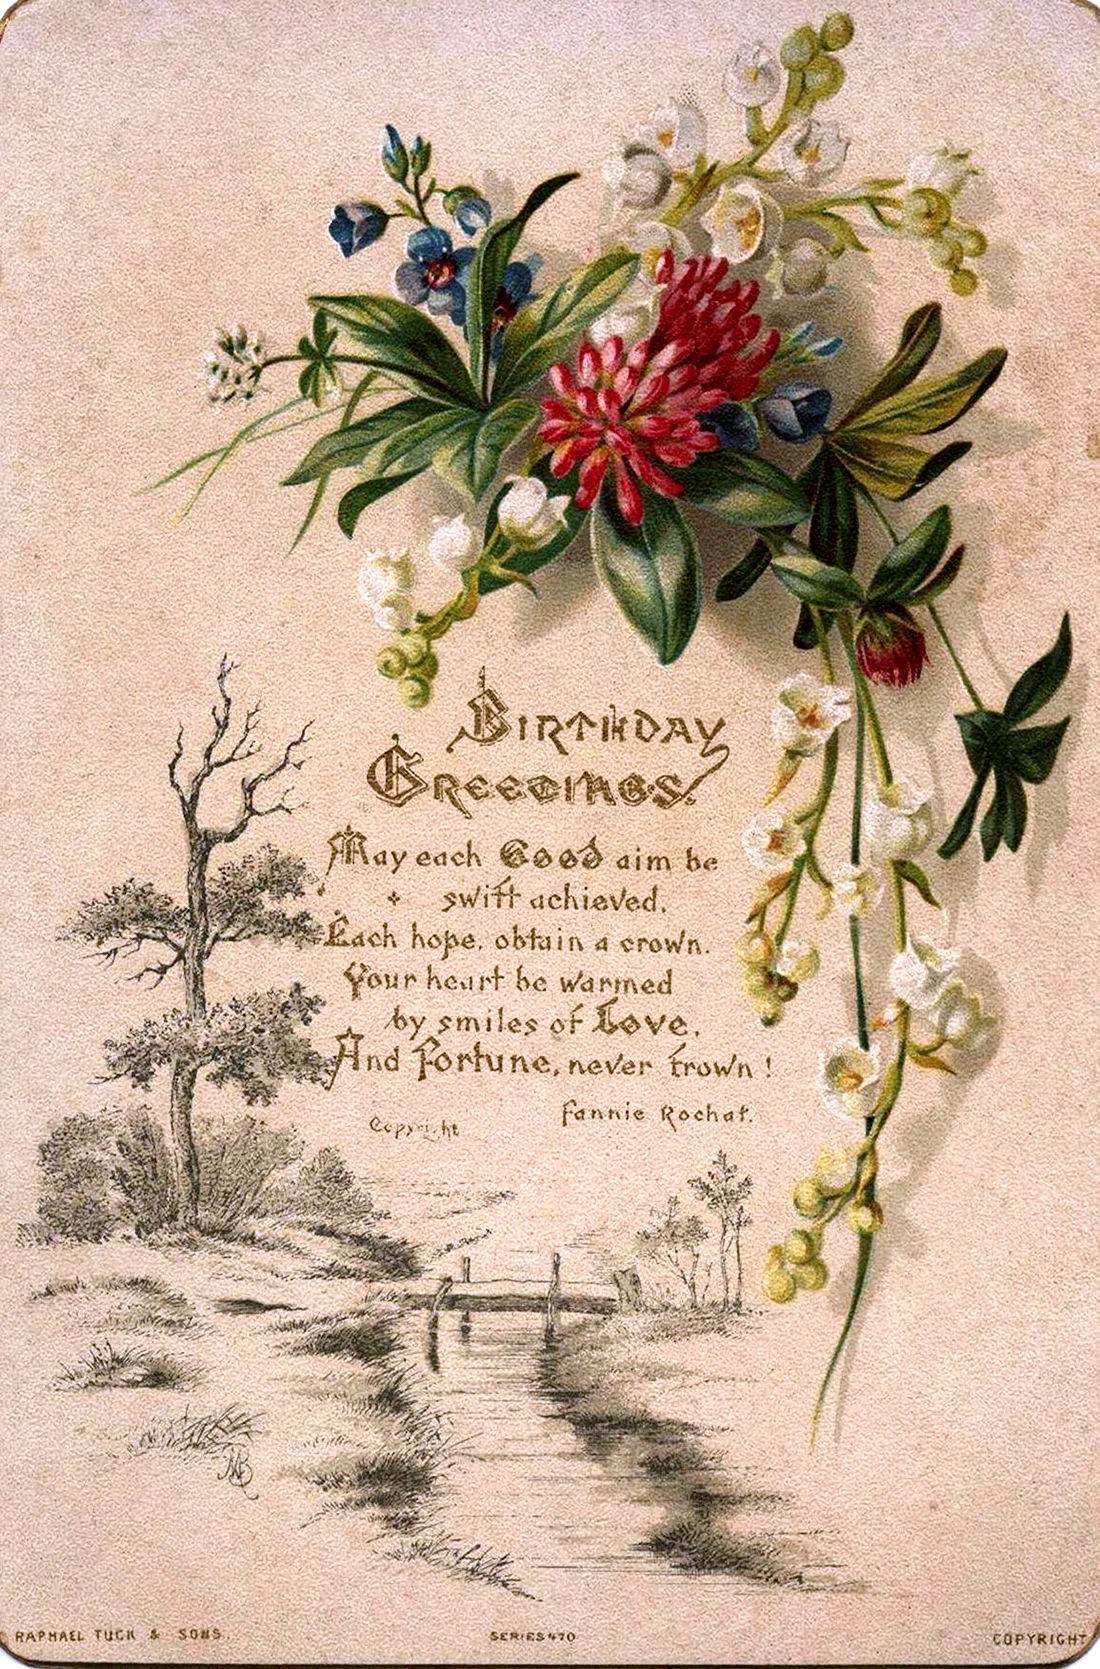 BIRTHDAY
GREETINGS.
May each Good aim be
swift achieved,
Each hope, obtain a crown.
Your heart be warmed
by smiles of Love,
And Fortune, never frown!
Fannie Rochat.
Copyright
MB
RAPHAEL TUCK & SONS. SERIES 470 COPYRIGHT